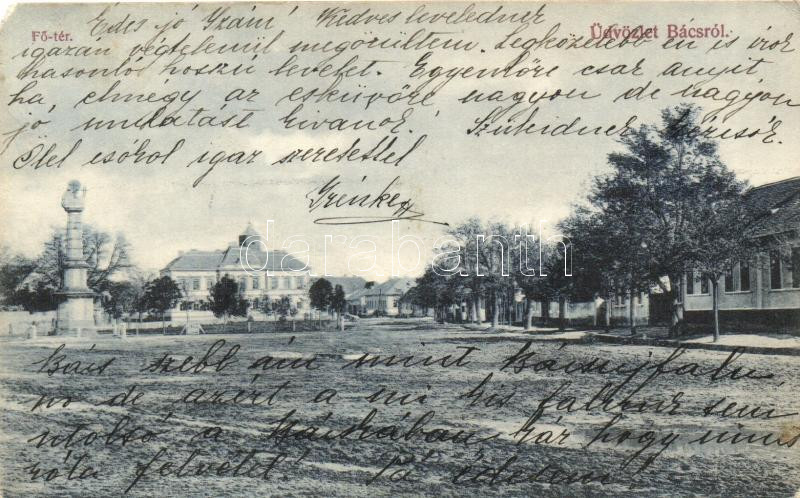 Fő-tér.
Üdvözlet Bácsról.
Édes jó Szám! Kedves levelednek
igazán végtelenül megörültem. Legközelebb én is írok
hasonló hosszú levelet. Egyenlőre csak annyit
ha, elmégy az esküvőre nagyon de nagyon
jó mulatást kivánok! Szüleidnek kézcsók.
Ölel csókol igaz szeretettel
Irénke
darabanth
Bács szebb ám mint Bácsujfalu
no de azért a mi kis falunk sem
utolsó a Bácskában kár hogy nincs
róla felvétel!